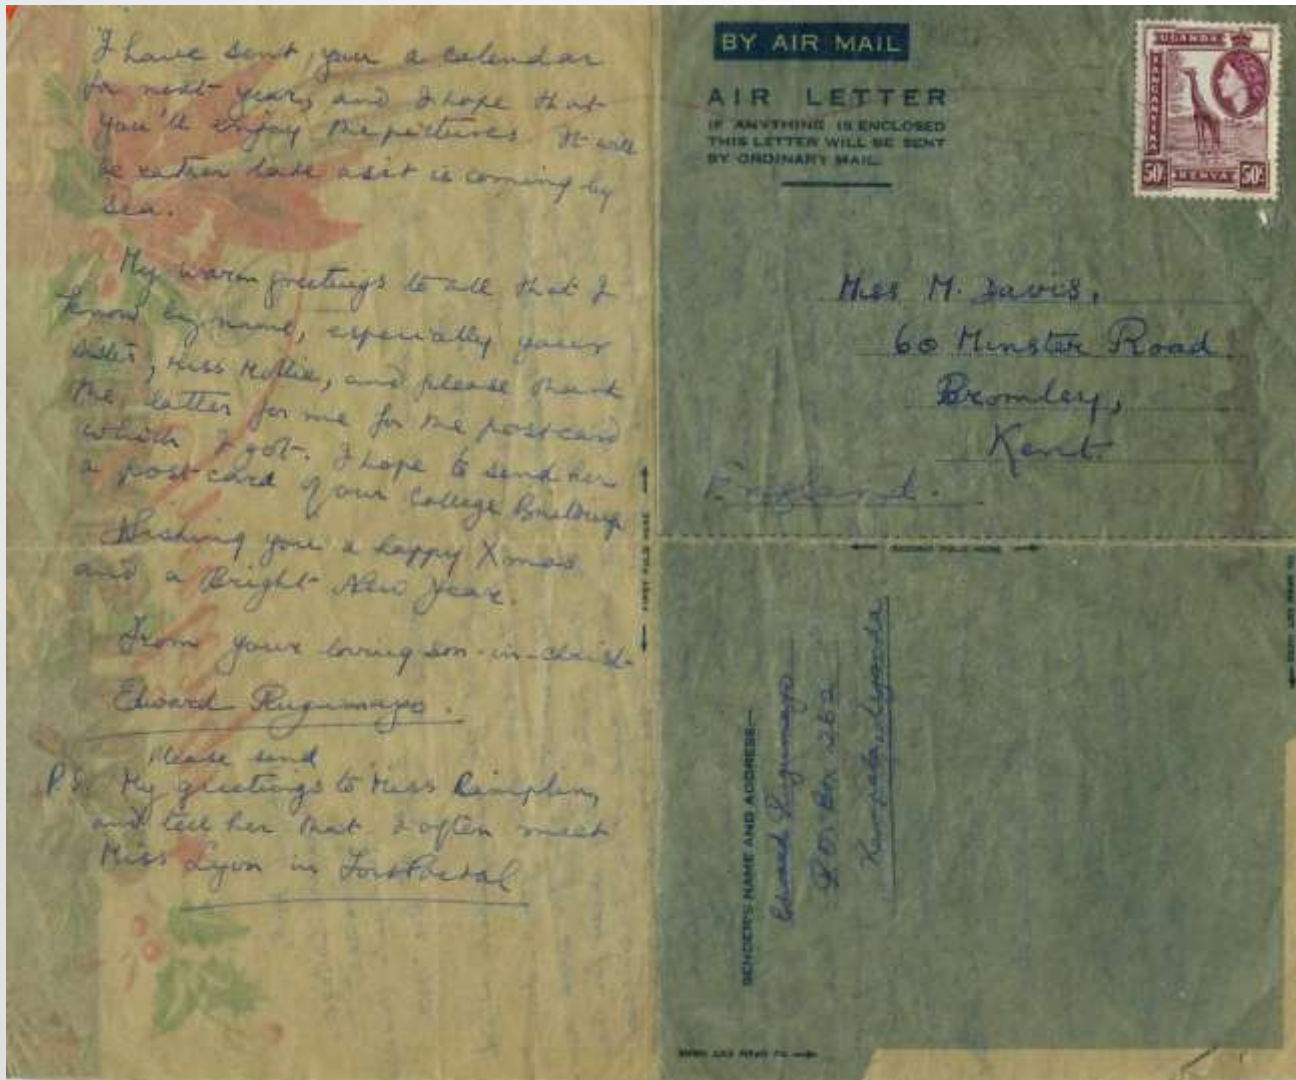 I have sent you a calendar
for next year, and I hope that
you'll enjoy the pictures. It will
be rather late as it is coming by
sea.
My warm greetings to all that I
know by name, especially your
sister, Miss Mollie, and please thank
the latter for me for the postcard
which I got. I hope to send her
a post card of our College Buildings
Wishing you a happy Xmas
and a Bright New Year.
From your loving son-in-Christ
Edward Rugumayo.
Please send
P.S. My greetings to Miss
and tell her that I often meet
Miss Lyon in Fort Portal
BY AIR MAIL
AIR LETTER
IF ANYTHING IS ENCLOSED
THIS LETTER WILL BE SENT
BY ORDINARY MAIL.
UGANDA
TANGANYIKA
50c
KENYA
50c
Miss M. Davis,
60 Minster Road
Bromley,
Kent
England.
FIRST FOLD HERE
SECOND FOLD HERE
SENDER'S NAME AND ADDRESS—
Edward Rugumayo
P.O. Box 262
Kampala, Uganda